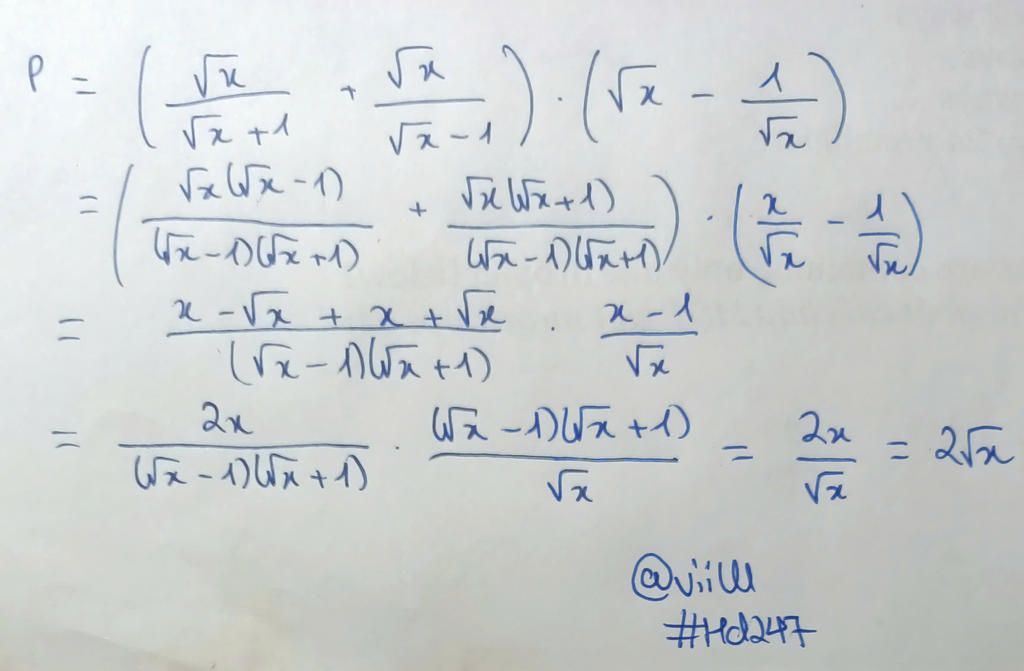 P = ( √x / (√x + 1) + √x / (√x - 1) ) · ( √x - 1 / √x )
= ( √x(√x - 1) / (√x - 1)(√x + 1) + √x(√x + 1) / (√x - 1)(√x + 1) ) · ( x / √x - 1 / √x )
= (x - √x + x + √x) / (√x - 1)(√x + 1) · (x - 1) / √x
= 2x / (√x - 1)(√x + 1) · (√x - 1)(√x + 1) / √x = 2x / √x = 2√x
#Hd247